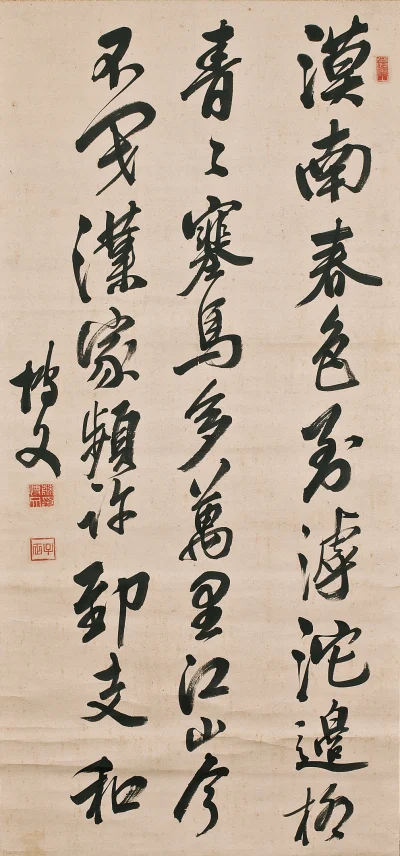 漠南春色到滹沱邊柳
青々塞馬多萬里江山今
不閉漢家頻許郅支和
博文